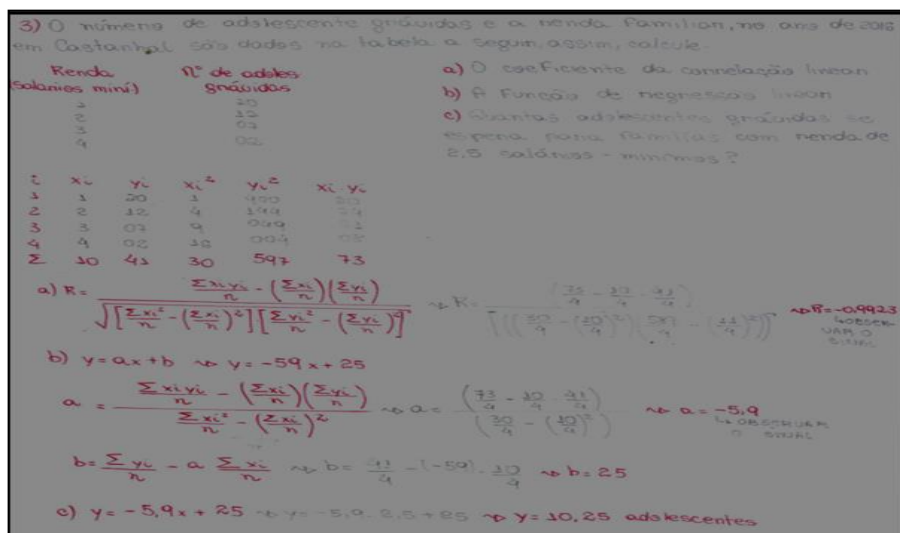 3) O número de adolescente grávidas e a renda familiar, no ano de 2018
em Castanhal são dados na tabela a seguir, assim, calcule.
Renda (Salários míni) Nº de adoles grávidas
1 20
2 12
3 07
4 02
a) O coeficiente da correlação linear
b) A Função de regressão linear
c) Quantas adolescentes grávidas se
espera para famílias com renda de
2,5 salários-mínimos?
i xi yi xi² yi² xi·yi
1 1 20 1 400 20
2 2 12 4 144 24
3 3 07 9 049 21
4 4 02 16 004 08
Σ 10 41 30 597 73
a) R = Σxiyi/n - (Σxi/n)(Σyi/n) / √[Σxi²/n - (Σxi/n)²][Σyi²/n - (Σyi/n)²] ⇝ R = (73/4 - 10/4 · 41/4) / √(((30/4 - (10/4)²)(597/4 - (41/4)²)) ⇝ R = -0,9923
↳ OBSERVAR O SINAL
b) y = ax + b ⇝ y = -59x + 25
a = Σxiyi/n - (Σxi/n)(Σyi/n) / Σxi²/n - (Σxi/n)² ⇝ a = (73/4 - 10/4 · 41/4) / (30/4 - (10/4)²) ⇝ a = -5,9
↳ OBSERVAR O SINAL
b = Σyi/n - a Σxi/n ⇝ b = 41/4 - (-59) · 10/4 ⇝ b = 25
c) y = -5,9x + 25 ⇝ y = -5,9 · 2,5 + 25 ⇝ y = 10,25 adolescentes